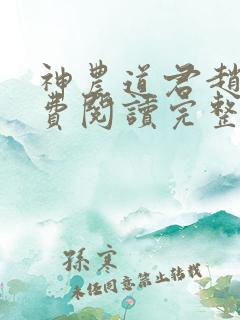 神農道君趙
費閱讀完整
孫寒
未經同意禁止轉載